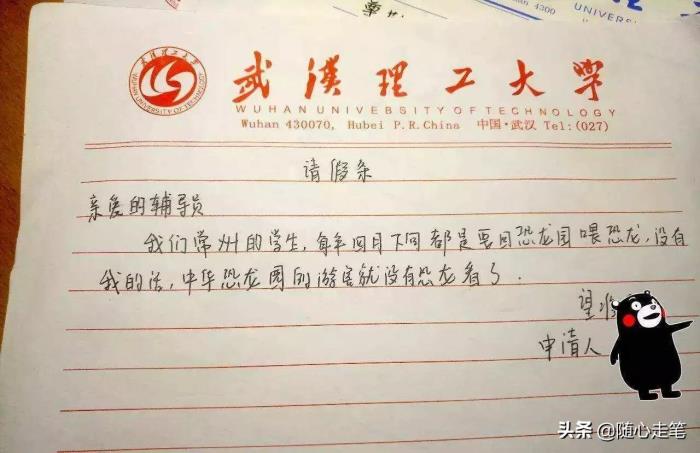 UNIVER
4300
武汉理工大学
WUHAN UNIVERSITY OF TECHNOLOGY
武漢理工大學
WUHAN UNIVERSITY OF TECHNOLOGY
Wuhan 430070, Hubei P.R.China 中国·武汉 Tel:(027)
请假条
亲爱的辅导员
我们常州的学生,每年四月下旬都是要回恐龙园喂恐龙,没有
我的话,中华恐龙园的游客就没有恐龙看了.
望准
申请人
头条 @随心走笔